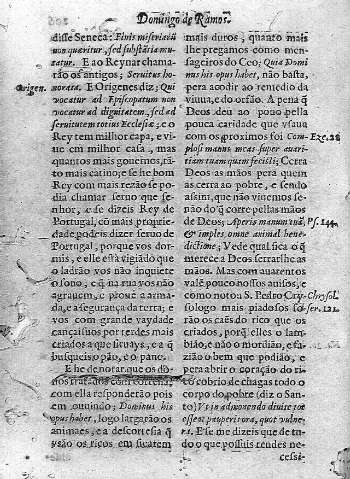 Domingo de Ramos.
disse Seneca: Finis miseriarũ
non quæritur, sed substãtia mu-
tatur. E ao Reynar chama-
rão os antigos; Seruitus ho-
norata. E Origenes diz; Qui
Origen.
vocatur ad Episcopatum non
vocatur ad dignitatem, sed ad
seruitutem totius Ecclesiæ; e o
Rey tem milhor capa, e vi-
ue em milhor casa, mas
quantos mais gouernos, tãto
mais catiuo; e se he bom
Rey com mais rezão se po-
dia chamar seruo que se-
nhor, e se dizeis Rey de
Portugal, cõ mais proprieda-
de podeis dizer seruo de
Portugal, porque vos dor-
mis, e elle está vigiãdo que
o ladrão vos não inquiete
o sono, e q̃ na rua vos não
agrauem, e proue a arma-
da, e a segurança da terra; e
vos com grande vaydade
cançaisuos por terdes mais
criados a que siruays, e a q̃
busqueis o pão, e o pane.
E he de notar que os do-
nos
com ella responderão pois
em ouuindo; Dominus his
opus habet, logo largarão os
animaes, e a descortesia q̃
vsão os ricos em ficarem
mais duros, quanto mais
lhe pregamos como men-
sageiros do Ceo; Quia Domi
nus his opus habet, não basta,
pera acodir ao remedio da
viuua, e do orfão. A pena q̃
Deos deu ao pouo pella
pouca caridade que vsaua
com os proximos foi Com-
Eze. 28
plosi manus meas super auari-
tiam tuam quam fecisti; Cerra
Deos as mãos pera quem
as cerra ao pobre, e sendo
assim, que não viuemos se-
não do q̃ corre pellas mãos
de Deos; Aperis manum tuã,
Ps. 144.
& imples omne animal bene-
dictione; Vede qual sica o q̃
merece a Deos serrarlhe as
mãos. Mas com auarentos
val pouco nossos auisos, e
como notou S. Pedro Cry-
Chrysol.
sologo mais piadosos fo-
ser. 121.
rão os cães do rico que os
criados, porq̃ elles o lam-
bião, e não o mordião, e fa-
zião o bem que podião, e
pera abrir o coração do ri-
co cobrio de chagas todo o
corpo do pobre (diz o San-
to) Vt in admonendo diuite tot
essent pauperis ora, quot vulne-
ra. E se me dizeis que de tu-
do o que possuis rendes ne-
cessi-